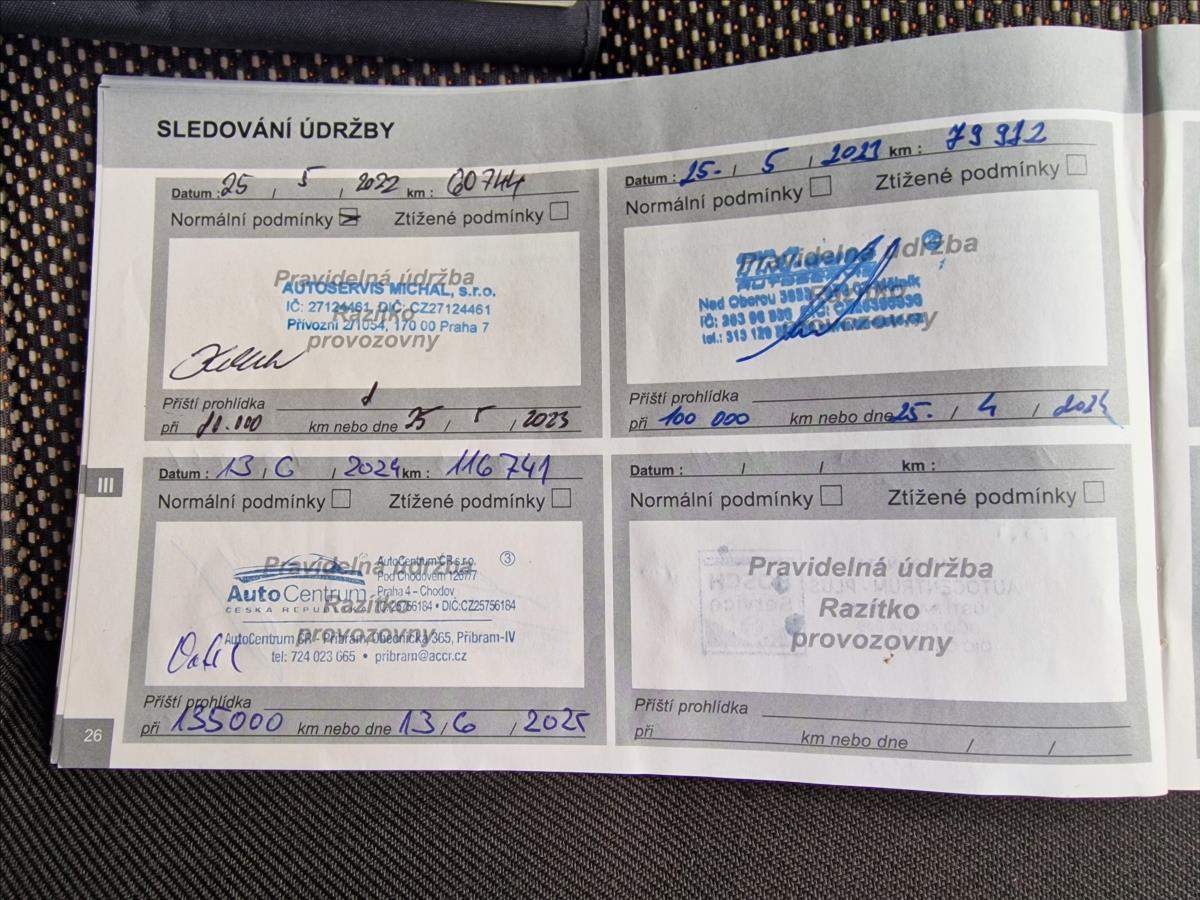 SLEDOVÁNÍ ÚDRŽBY
Datum : 25 / 5 / 2022 km : 60744
Normální podmínky Ztížené podmínky
Pravidelná údržba
AUTOSERVIS MICHAL, s.r.o.
IČ: 27124461, DIČ: CZ27124461
Razítko
Přívozní 2/1054, 170 00 Praha 7
provozovny
Příští prohlídka
při km nebo dne 25 / 5 / 2023
Datum : 25. / 5 / 2023 km : 79 912
Normální podmínky Ztížené podmínky
Pravidelná údržba
Nad Oborou Mělník
Razítko
IČ:
provozovny
tel.: 313 129
Příští prohlídka
při 100 000 km nebo dne 25. / 4 / 2024
Datum : 13 / 6 / 2024 km : 116741
Normální podmínky Ztížené podmínky
Pravidelná údržba
AutoCentrum ČR s.r.o. 3
Pod Chodovem 126/77
AutoCentrum Praha 4 - Chodov
ČESKÁ REPUBLIKA Razítko IČ:25756184 • DIČ:CZ25756184
provozovny
AutoCentrum ČR - Příbram, Obecnická 365, Příbram-IV
tel: 724 023 065 • pribram@accr.cz
Příští prohlídka
při 135000 km nebo dne 13 / 6 / 2025
Datum : / / km :
Normální podmínky Ztížené podmínky
Pravidelná údržba
Razítko
provozovny
Příští prohlídka
při km nebo dne / /
III
26